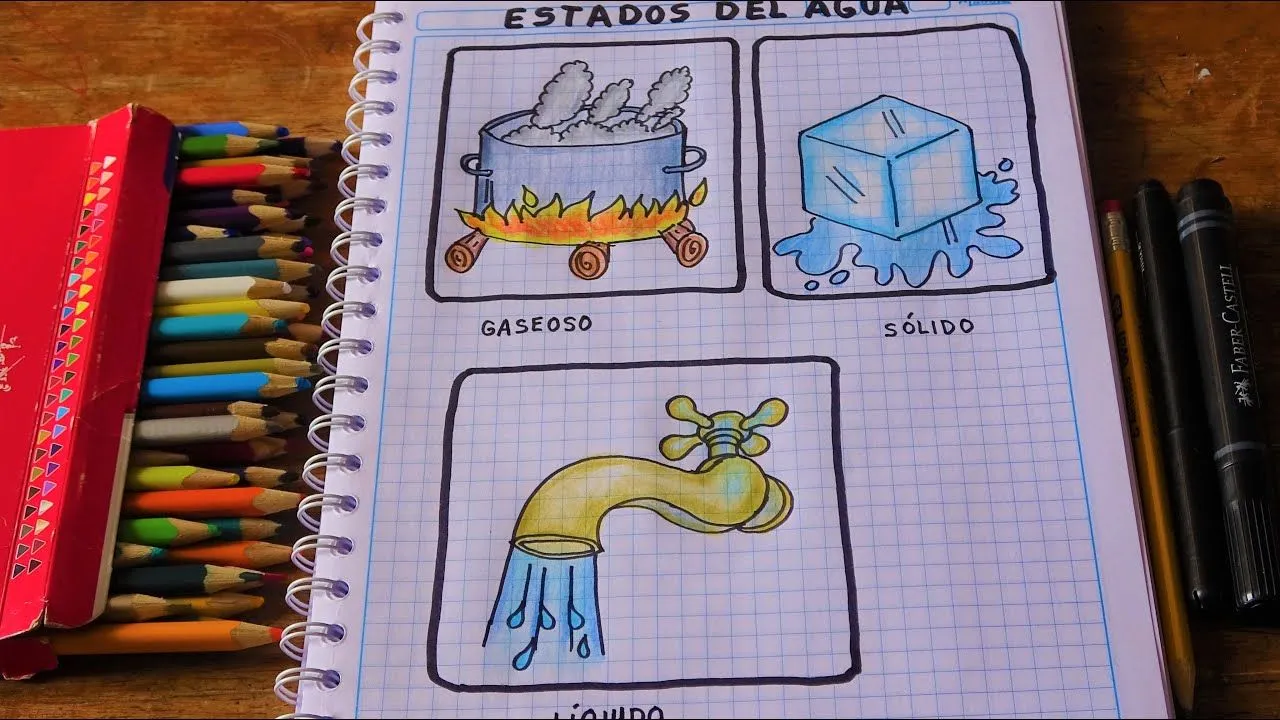 ESTADOS DEL AGUA
GASEOSO
SÓLIDO
LÍQUIDO
FABER-CASTELL